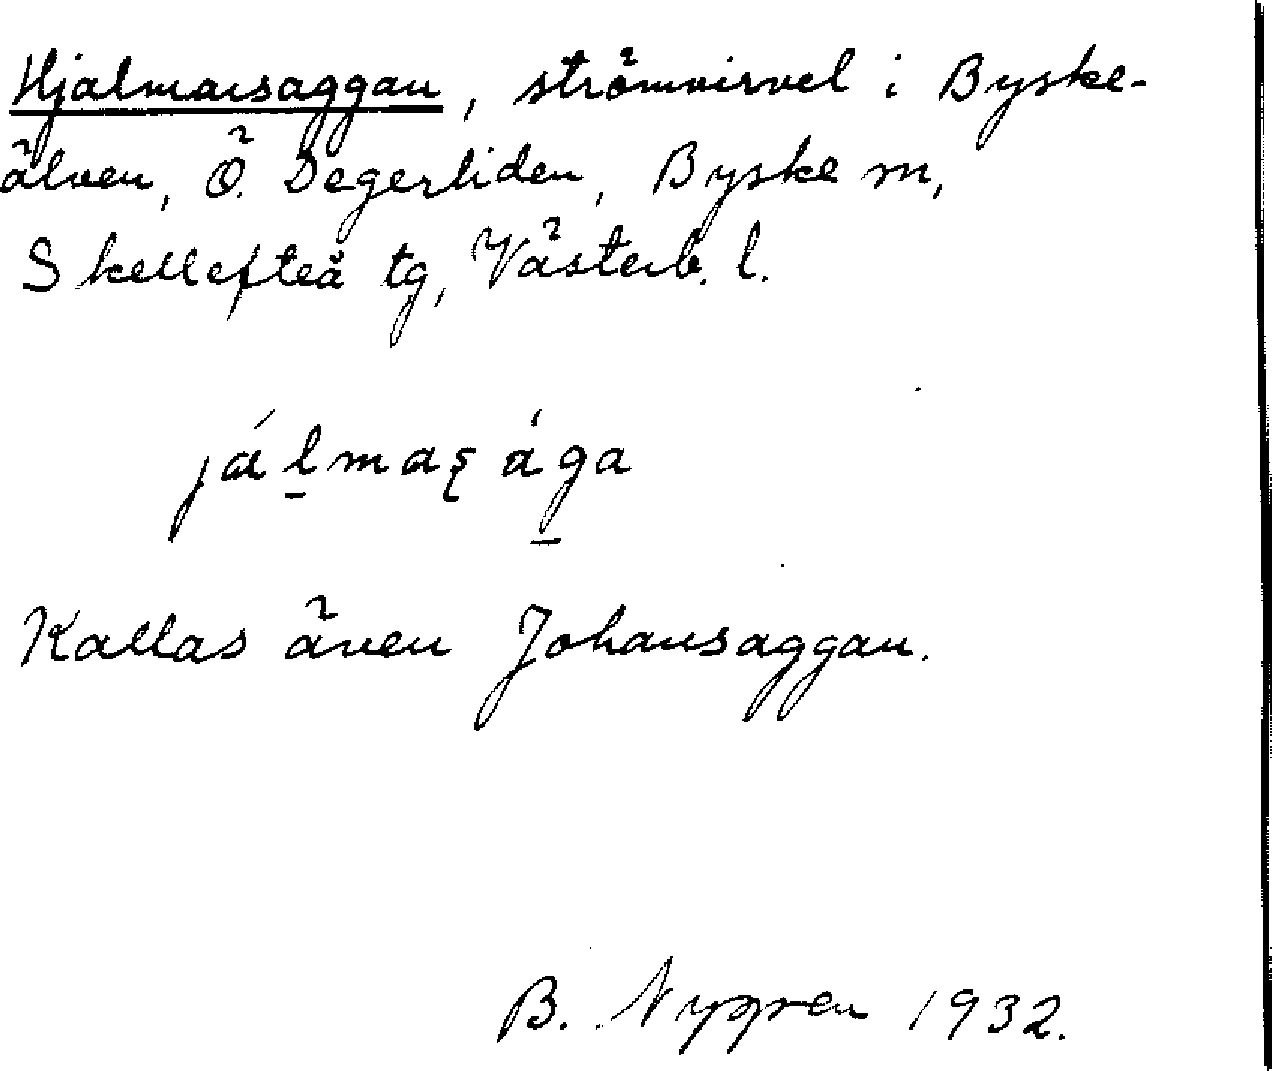 Hjalmarsaggan, strömvirvel i Byske-
älven, Ö. Degerliden, Byske sn,
Skellefteå tg, Västerb. l.
jálmaʂága
Kallas även Johansaggan.
B. Nygren 1932.